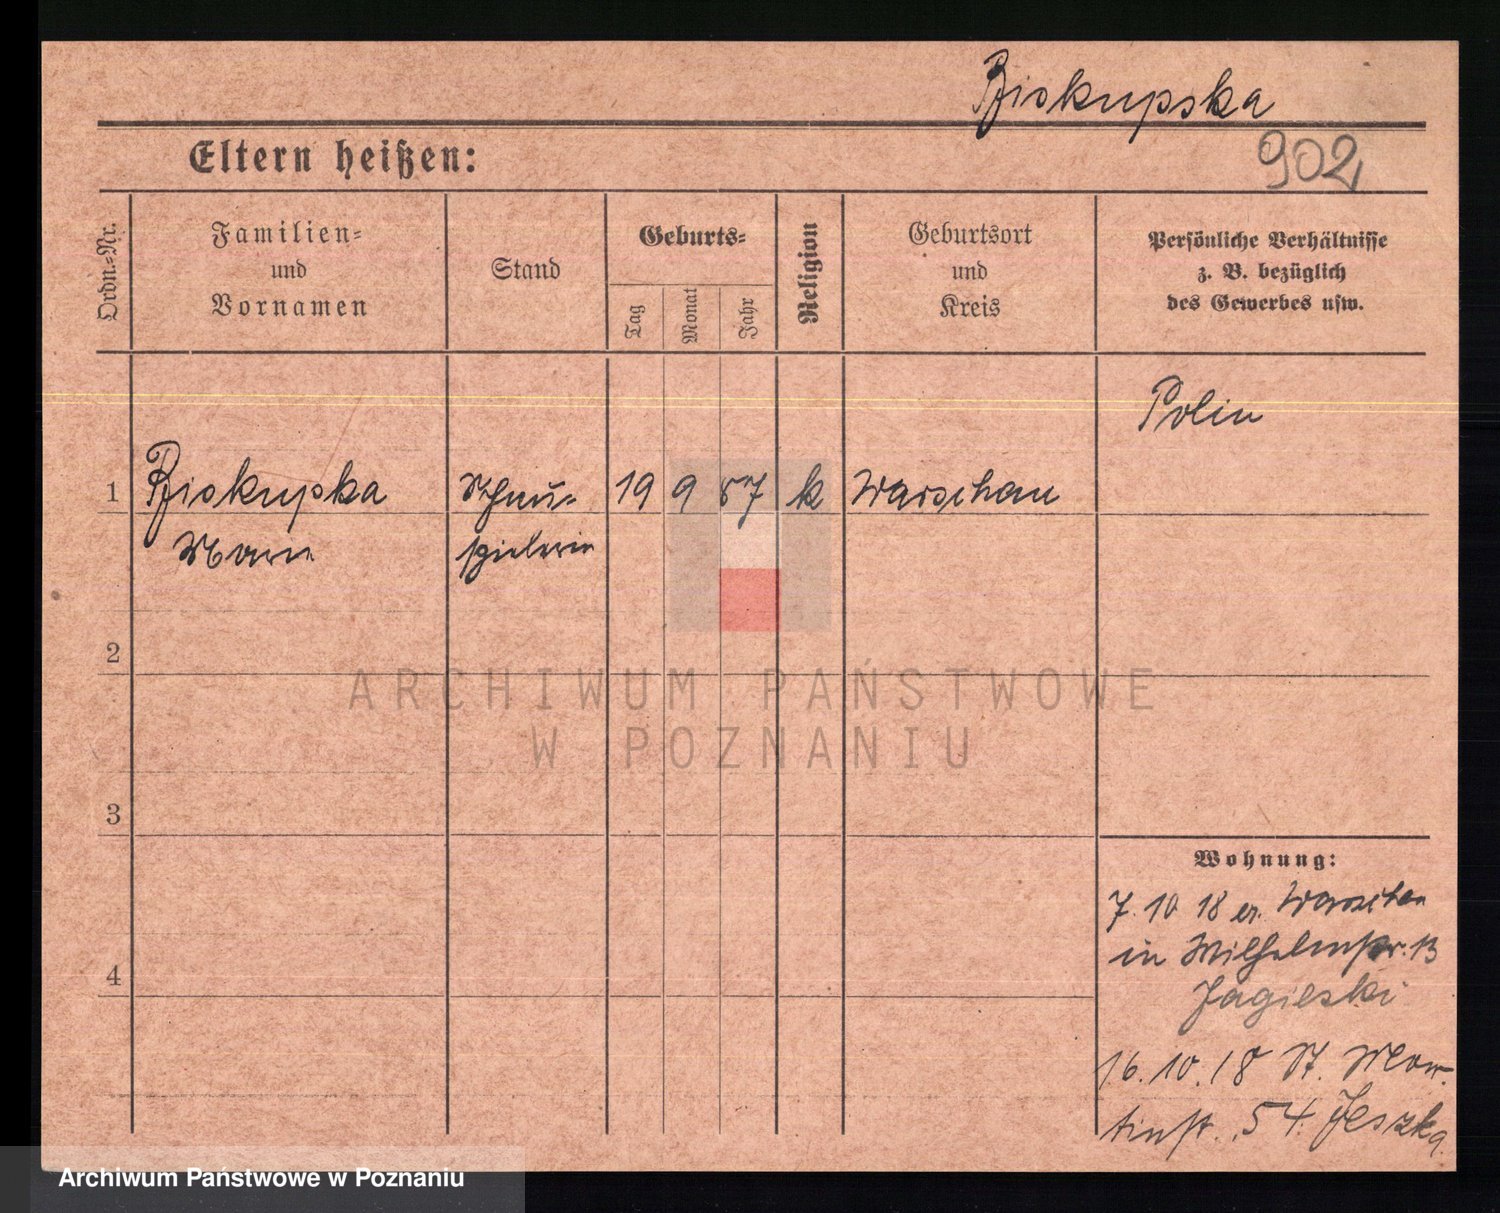 Biskupska
902
Eltern heißen:
Ordn.-Nr.
Familien-
und
Vornamen
Stand
Geburts-
Tag
Monat
Jahr
Religion
Geburtsort
und
Kreis
Persönliche Verhältnisse
z. B. bezüglich
des Gewerbes usw.
Polin
1
Biskupska
Schau-
19
9
87
k
Warschau
spielerin
2
3
4
Wohnung:
7. 10 18 Warschau
in Wilhelmstr. 13
Jagielski
16. 10. 18 St. Mar-
tinstr. 54. Jeszka
ARCHIWUM PAŃSTWOWE
W POZNANIU
Archiwum Państwowe w Poznaniu